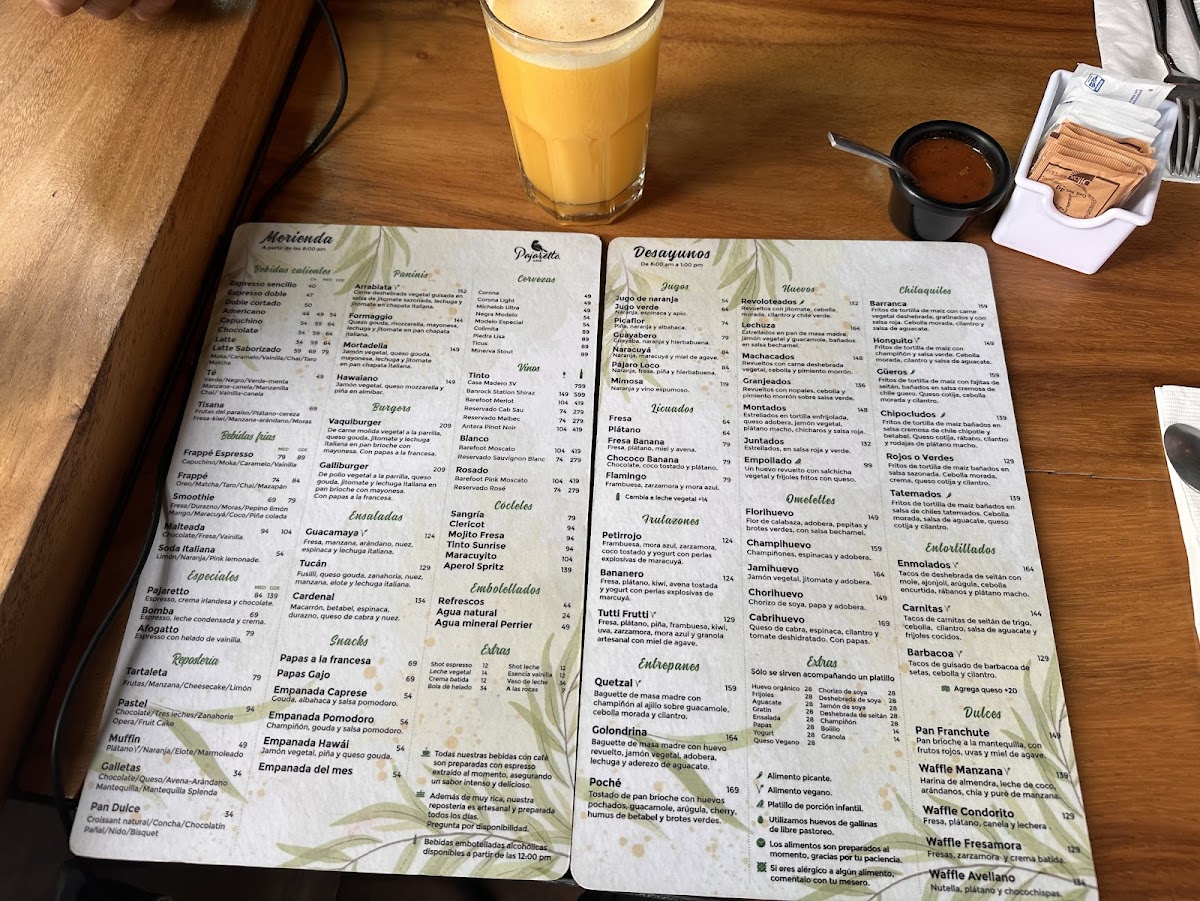 Merienda
A partir de las 8:00 am
Pajaretto
CAFÉ
Bebidas calientes
CH MED GDE
Espresso sencillo 40
Espresso doble 47
Doble cortado 50
Americano 44 49 54
Capuchino 54 59 64
Chocolate 54 59 64
Latte 54 59 64
Latte Saborizado 59 69 79
Moka/Caramelo/Vainilla/Chai/Taro
Matcha
Té 49
Verde/Negro/Verde-menta
Manzana-canela/Manzanilla
Chai/ Vainilla-canela
Tisana 69
Frutas del paraíso/Plátano-cereza
Fresa-kiwi/Manzana-arándano/Moras
Bebidas frías
MED GDE
Frappé Espresso 79 89
Capuchino/Moka/Caramelo/Vainilla
Frappé 74 84
Oreo/Matcha/Taro/Chai/Mazapán
Smoothie 69 79
Fresa/Durazno/Moras/Pepino limón
Mango/Maracuyá/Coco/Piña colada
Malteada 94 104
Chocolate/Fresa/Vainilla.
Soda Italiana 54
Limón/Naranja/Pink lemonade.
Especiales
MED GDE
Pajaretto 84 139
Espresso, crema irlandesa y chocolate.
Bomba 69
Espresso, leche condensada y crema.
Afogatto 79
Espresso con helado de vainilla.
Repostería
Tartaleta 79
Frutas/Manzana/Cheesecake/Limón
Pastel 94
Chocolate/Tres leches/Zanahoria
Opera/Fruit Cake
Muffin 49
Plátano/Naranja/Elote/Marmoleado
Galletas 34
Chocolate/Queso/Avena-Arándano
Mantequilla/Mantequilla Splenda
Pan Dulce 34
Croissant natural/Concha/Chocolatín
Pañal/Nido/Bisquet
Paninis
Arrabiata 152
Carne deshebrada vegetal guisada en
salsa de jitomate sazonada, lechuga y
jitomate en chapata italiana.
Formaggio 144
Queso gouda, mozzarella, mayonesa,
lechuga y jitomate en pan chapata
italiana.
Mortadelia 149
Jamón vegetal, queso gouda,
mayonesa, lechuga y jitomate
en pan chapata italiana.
Hawaiano 149
Jamón vegetal, queso mozzarella y
piña en almíbar.
Burgers
Vaquiburger 209
De carne molida vegetal a la parrilla,
queso gouda, jitomate y lechuga
italiana en pan brioche con
mayonesa. Con papas a la francesa.
Galliburger 209
De pollo vegetal a la parrilla, queso
gouda, jitomate y lechuga italiana
en pan brioche con mayonesa.
Con papas a la francesa.
Ensaladas
Guacamaya 124
Fresa, manzana, arándano, nuez,
espinaca y lechuga italiana.
Tucán 129
Fusilli, queso gouda, zanahoria, nuez,
manzana, elote y lechuga italiana.
Cardenal 134
Macarrón, betabel, espinaca,
durazno, queso de cabra y nuez.
Snacks
Papas a la francesa 69
Papas Gajo 69
Empanada Caprese 54
Gouda, albahaca y salsa pomodoro.
Empanada Pomodoro 54
Champiñón, gouda y salsa pomodoro.
Empanada Hawái 54
Jamón vegetal, piña y queso gouda.
Empanada del mes 54
Cervezas
Corona 49
Corona Light 49
Michelob Ultra 54
Negra Modelo 54
Modelo Especial 54
Colimita 89
Piedra Lisa 89
Ticus 89
Minerva Stout 89
Vinos
Tinto
Casa Madero 3V 799
Banrock Station Shiraz 149 599
Barefoot Merlot 104 419
Reservado Cab Sau 74 279
Reservado Malbec 74 279
Antera Pinot Noir 104 419
Blanco
Barefoot Moscato 104 419
Reservado Sauvignon Blanc 74 279
Rosado
Barefoot Pink Moscato 104 419
Reservado Rosé 74 279
Cocteles
Sangría 79
Clericot 94
Mojito Fresa 94
Tinto Sunrise 94
Maracuyito 104
Aperol Spritz 139
Embotellados
Refrescos 44
Agua natural 24
Agua mineral Perrier 49
Extras
Shot espresso 12 Shot leche 12
Leche vegetal 14 Esencia vainilla 12
Crema batida 12 Vaso de leche 34
Bola de helado 34 A las rocas 7
Todas nuestras bebidas con café
son preparadas con espresso
extraído al momento, asegurando
un sabor intenso y delicioso.
Además de muy rica, nuestra
repostería es artesanal y preparada
todos los días.
Pregunta por disponibilidad.
Bebidas embotelladas alcohólicas
disponibles a partir de las 12:00 pm
Desayunos
De 8:00 am a 1:00 pm
Jugos
Jugo de naranja 54
Jugo verde 64
Naranja, espinaca y apio.
Picaflor 74
Piña, naranja y albahaca.
Guayabero 74
Guayaba, naranja y hierbabuena.
Naracuyá 64
Naranja, maracuyá y miel de agave.
Pájaro Loco 84
Naranja, fresa, piña y hierbabuena.
Mimosa 119
Naranja y vino espumoso.
Licuados
Fresa 64
Plátano 64
Fresa Banana 79
Fresa, plátano, miel y avena.
Chococo Banana 79
Chocolate, coco tostado y plátano.
Flamingo 79
Frambuesa, zarzamora y mora azul.
Cambia a leche vegetal +14
Frutazones
Petirrojo 124
Frambuesa, mora azul, zarzamora,
coco tostado y yogurt con perlas
explosivas de maracuyá.
Bananero 124
Fresa, plátano, kiwi, avena tostada
y yogurt con perlas explosivas de
maracuyá.
Tutti Frutti 129
Fresa, plátano, piña, frambuesa, kiwi,
uva, zarzamora, mora azul y granola
artesanal con miel de agave.
Entrepanes
Quetzal 159
Baguette de masa madre con
champiñón al ajillo sobre guacamole,
cebolla morada y cilantro.
Golondrina 164
Baguette de masa madre con huevo
revuelto, jamón vegetal, adobera,
lechuga y aderezo de aguacate.
Poché 169
Tostado de pan brioche con huevos
pochados, guacamole, arúgula, cherry,
humus de betabel y brotes verdes.
Huevos
Revoloteados 132
Revueltos con jitomate, cebolla
morada, cilantro y chile verde.
Lechuza 164
Estrellados en pan de masa madre,
jamón vegetal y guacamole, bañados
en salsa bechamel.
Machacados 149
Revueltos con carne deshebrada
vegetal, cebolla y pimiento morrón.
Granjeados 136
Revueltos con nopales, cebolla y
pimiento morrón sobre salsa verde.
Montados 148
Estrellados en tortilla enfrijolada,
queso adobera, jamón vegetal,
plátano macho, chícharos y salsa roja.
Juntados 132
Estrellados, en salsa roja y verde.
Empollado 99
Un huevo revuelto con salchicha
vegetal y frijoles fritos con queso.
Omelettes
Florihuevo 149
Flor de calabaza, adobera, pepitas y
brotes verdes, con salsa bechamel.
Champihuevo 159
Champiñones, espinacas y adobera.
Jamihuevo 164
Jamón vegetal, jitomate y adobera.
Chorihuevo 149
Chorizo de soya, papa y adobera.
Cabrihuevo 169
Queso de cabra, espinaca, cilantro y
tomate deshidratado. Con papas.
Extras
Sólo se sirven acompañando un platillo
Huevo orgánico 28 Chorizo de soya 28
Frijoles 28 Deshebrada de soya 28
Aguacate 28 Jamón de soya 28
Gratín 28 Deshebrada de seitán 28
Ensalada 28 Champiñón 28
Papas 28 Bolillo 14
Yogurt 28 Granola 14
Queso Vegano 28
Alimento picante.
Alimento vegano.
Platillo de porción infantil.
Utilizamos huevos de gallinas
de libre pastoreo.
Los alimentos son preparados al
momento, gracias por tu paciencia.
Si eres alérgico a algún alimento,
comentalo con tu mesero.
Chilaquiles
Barranca 159
Fritos de tortilla de maíz con carne
vegetal deshebrada, gratinados y con
salsa roja. Cebolla morada, cilantro y
salsa de aguacate.
Honguito 149
Fritos de tortilla de maíz con
champiñón y salsa verde. Cebolla
morada, cilantro y salsa de aguacate.
Güeros 159
Fritos de tortilla de maíz con fajitas
de seitán, bañados en salsa cremosa de
chile güero. Queso cotija, cebolla
morada y cilantro.
Chipocludos 139
Fritos de tortilla de maíz bañados en
salsa cremosa de chile chipotle y
betabel. Queso cotija, rábano, cilantro
y rodajas de plátano macho.
Rojos o Verdes 129
Fritos de tortilla de maíz bañados en
salsa sazonada. Cebolla morada,
crema, queso cotija y cilantro.
Tatemados 139
Fritos de tortilla de maíz bañados en
salsa de chiles tatemados. Cebolla
morada, salsa de aguacate, queso
cotija y cilantro.
Entortillados
Enmolados 164
Tacos de deshebrada de seitán con
mole, ajonjolí, aguacate, cebolla
encurtida, rábanos y plátano macho.
Carnitas 144
Tacos de carnitas de seitán de trigo,
cebolla, cilantro, salsa de aguacate y
frijoles cocidos.
Barbacoa 129
Tacos de guisado de barbacoa de
setas, cebolla y cilantro.
Agrega queso +20
Dulces
Pan Franchute 149
Pan brioche a la mantequilla, con
frutos rojos, uvas y miel de agave.
Waffle Manzana 139
Harina de almendra, leche de coco,
arándanos, chía y puré de manzana.
Waffle Condorito 129
Fresa, plátano, canela y lechera.
Waffle Fresamora 129
Fresas, zarzamora y crema batida.
Waffle Avellano 134
Nutella, plátano y chocochispas.